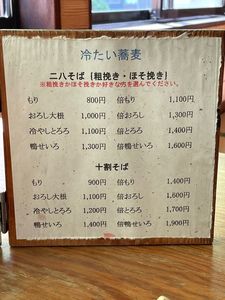 冷たい蕎麦
二八そば〔粗挽き・ほそ挽き〕
※粗挽きかほそ挽きか好きな方を選んでください。
もり 800円 倍もり 1,100円
おろし大根 1,000円 倍おろし 1,300円
冷やしとろろ 1,100円 倍とろろ 1,400円
鴨せいろ 1,300円 倍鴨せいろ 1,600円
十割そば
もり 900円 倍もり 1,400円
おろし大根 1,100円 倍おろし 1,600円
冷やしとろろ 1,200円 倍とろろ 1,700円
鴨せいろ 1,400円 倍鴨せいろ 1,900円